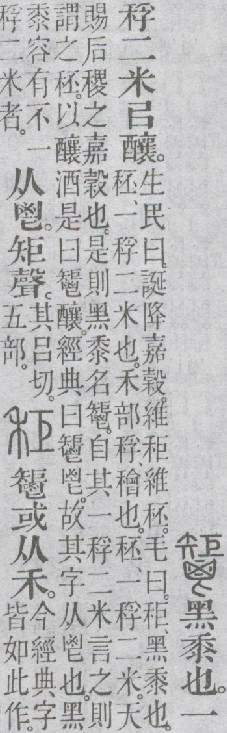 𩰤黑黍也。一
稃二米㠯釀。
生民曰。誕降嘉穀。維秬維秠。毛曰。秬、黑黍也。
秠、一稃二米也。禾部稃、𥢶也。秠、一稃二米。天
賜后稷之嘉穀也。是則黑黍名𩰤。自其一稃二米言之則
謂之秠。以釀酒是曰𩰤釀。經典曰𩰤鬯。故其字从鬯也。黑
黍容有不一
稃二米者。
从鬯。矩聲。
其呂切。
五部。
秬𩰤或从禾。
今經典字
皆如此作。